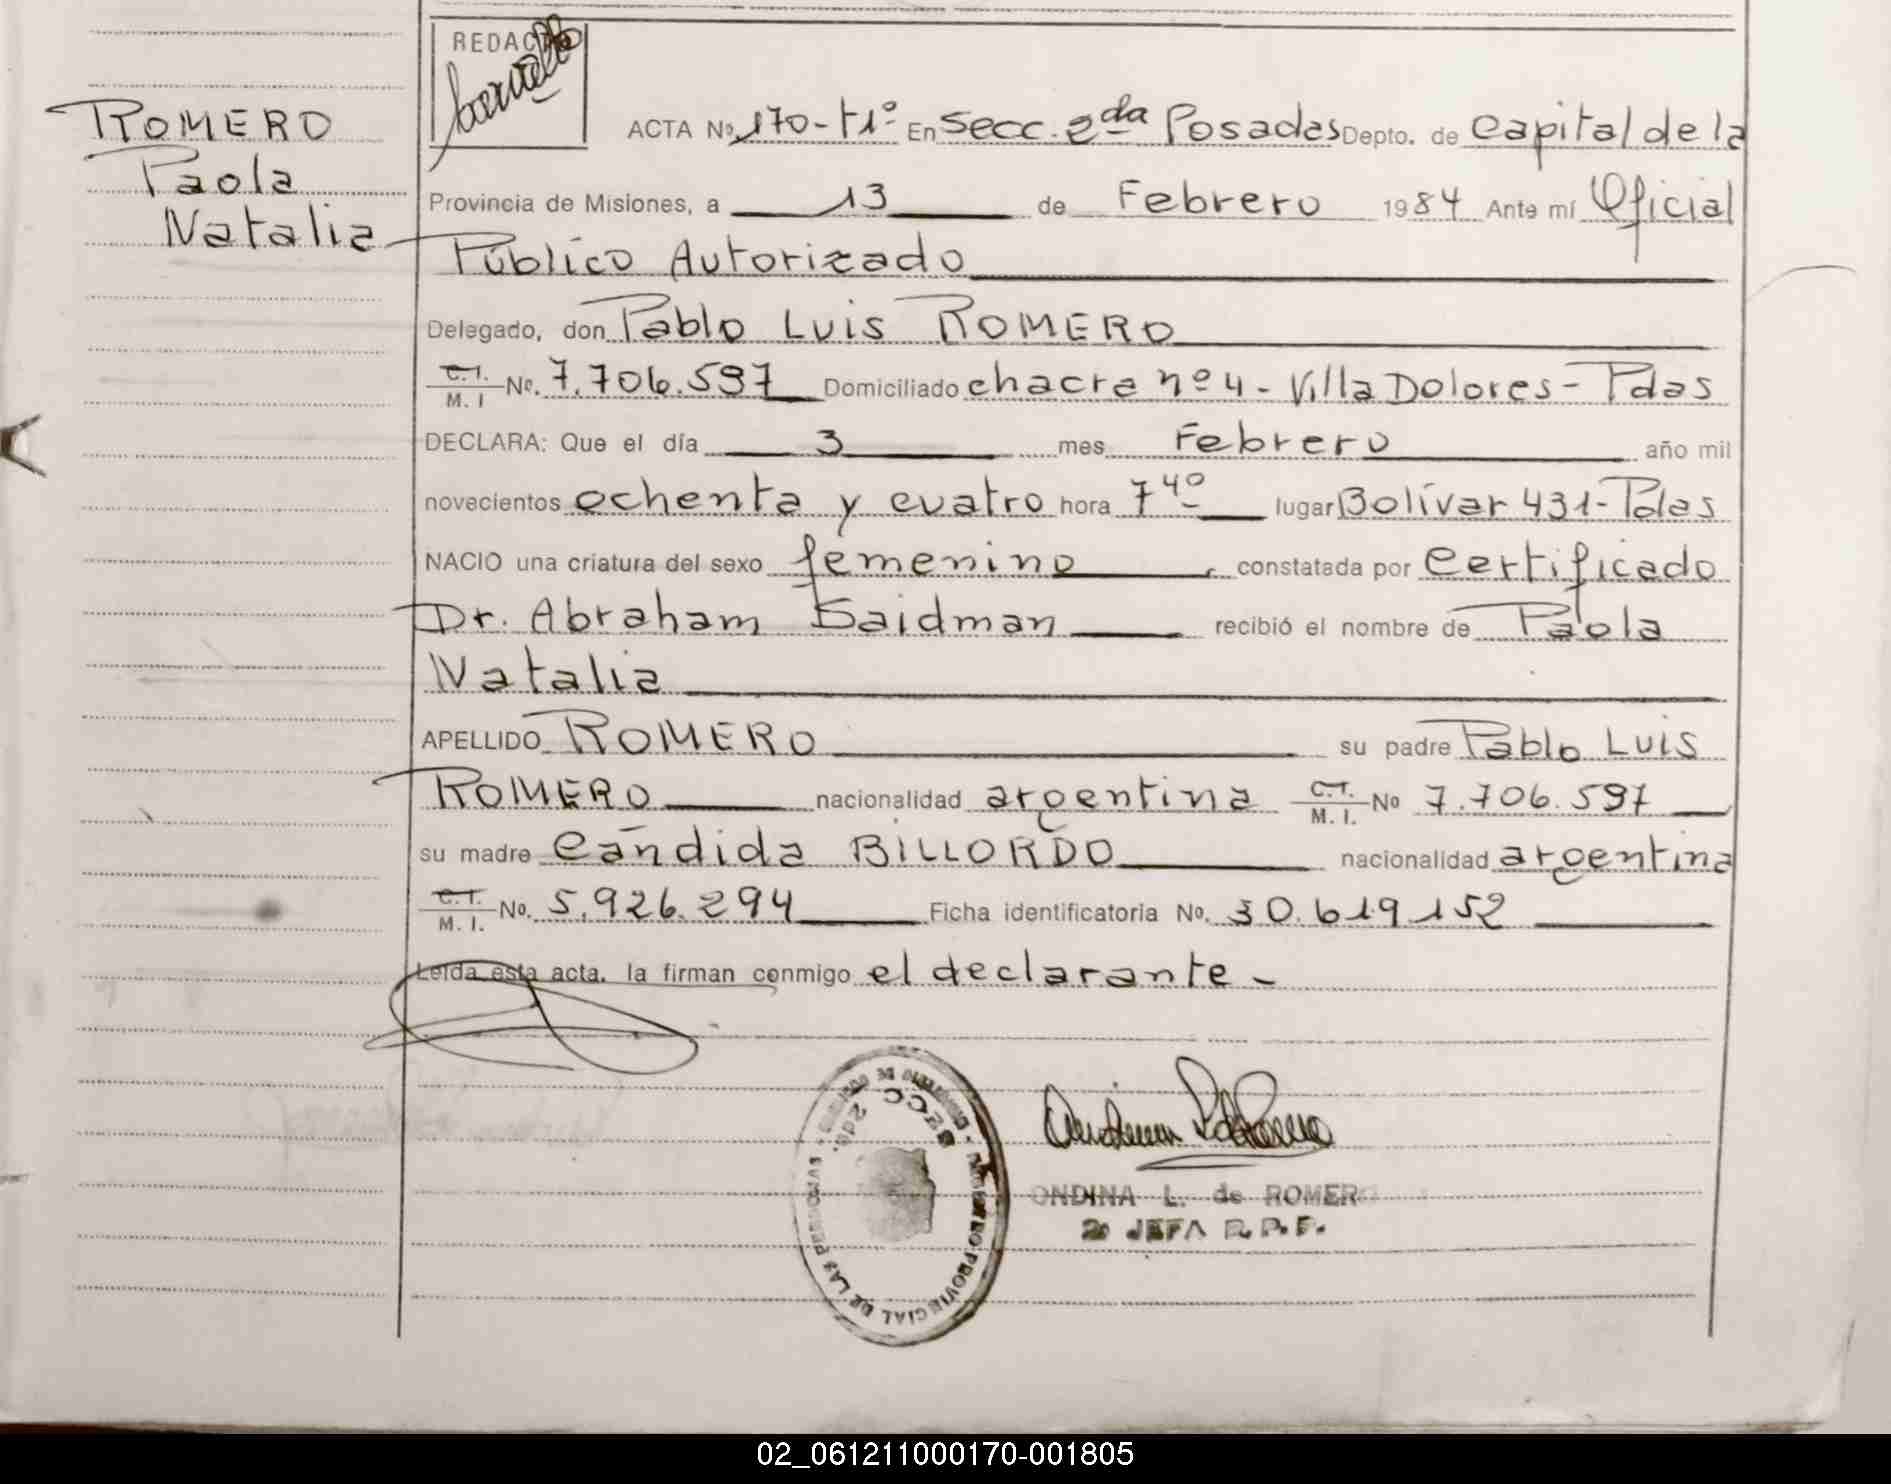 REDACTO
ROMERO
Paola
Natalia
ACTA Nº 170-t1º En Secc. 2da Posadas Depto. de Capital de la
Provincia de Misiones, a 13 de Febrero 1984 Ante mí Oficial
Público Autorizado
Delegado, don Pablo Luis ROMERO
C.I. M. I No. 7.706.597 Domiciliado chacra nº 4 - Villa Dolores - Pdas
DECLARA: Que el día 3 mes Febrero año mil
novecientos ochenta y cuatro hora 7 40 lugar Bolívar 431 - Pdas
NACIO una criatura del sexo femenino constatada por certificado
Dr. Abraham Saidman recibió el nombre de Paola
Natalia
APELLIDO ROMERO su padre Pablo Luis
ROMERO nacionalidad argentina C.I. M. I. No 7.706.597
su madre Cándida BILLORDO nacionalidad argentina
C.I. M. I. No. 5.926.294 Ficha identificatoria No. 30.619.152
Leída esta acta, la firman conmigo el declarante -
SECC 2da.
REGISTRO PROVINCIAL DE LAS PERSONAS
ONDINA L. de ROMERO
2a JEFA R.P.P.
02_061211000170-001805